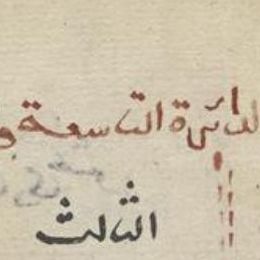 الدائرة التاسعة و
الثالث